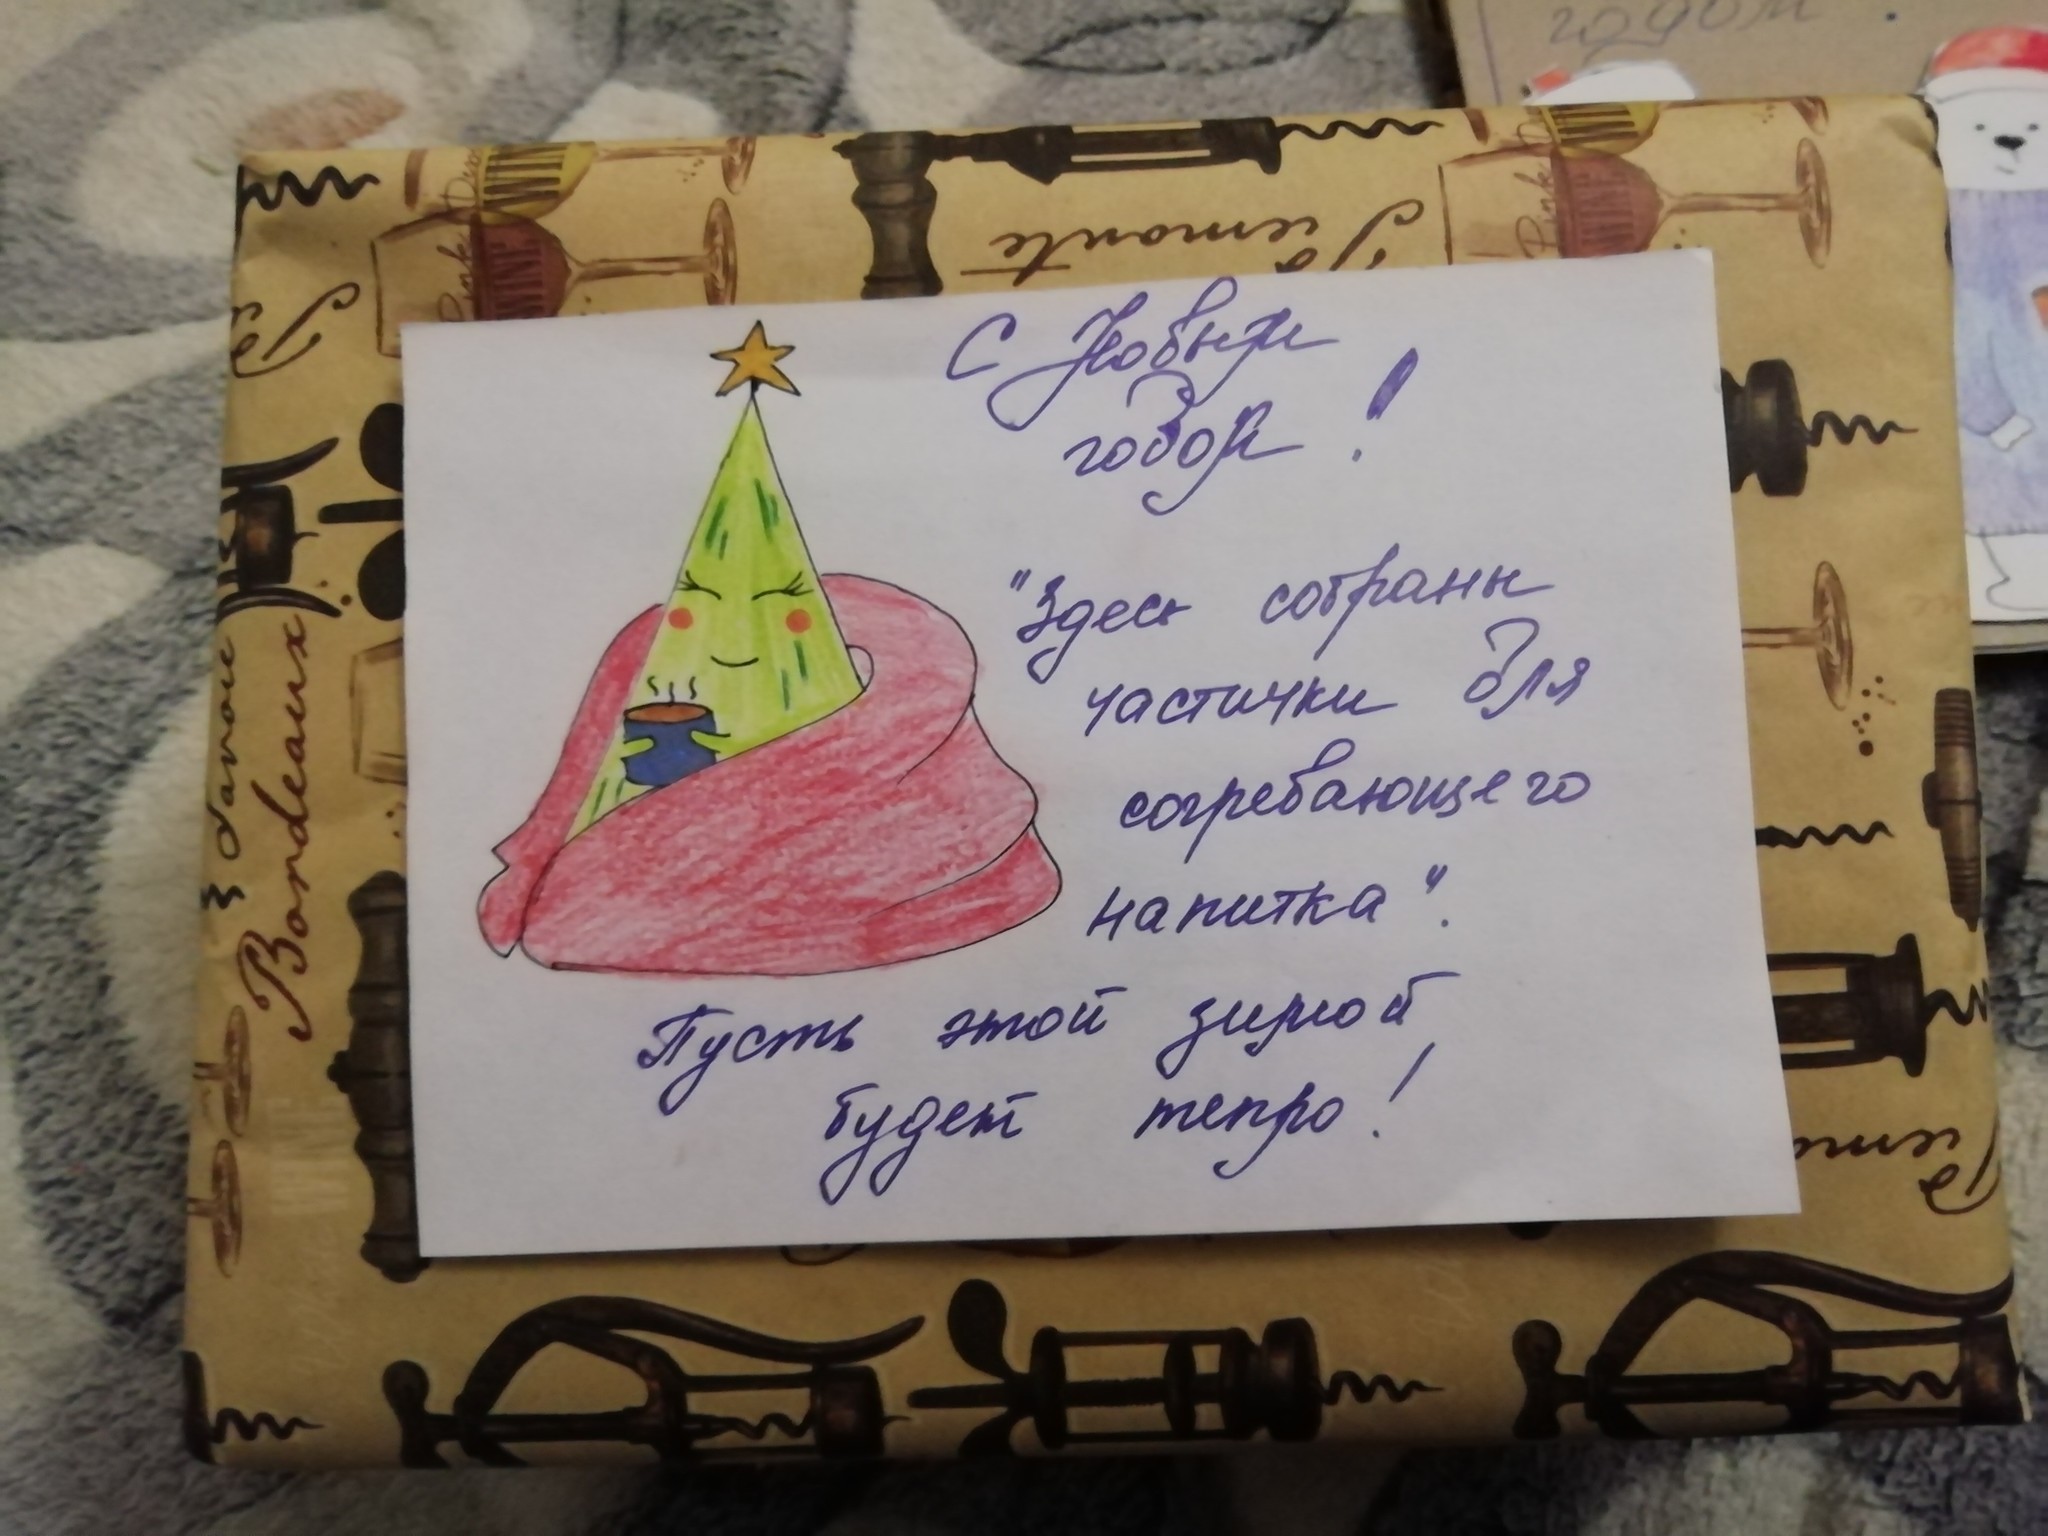 годом.
Pink
WINE
Pink
WINE
Piemonte
С Новым
годом!
"Здесь собраны
частички для
согревающего
напитка".
Пусть этой зимой
будет тепло!
Bordeaux